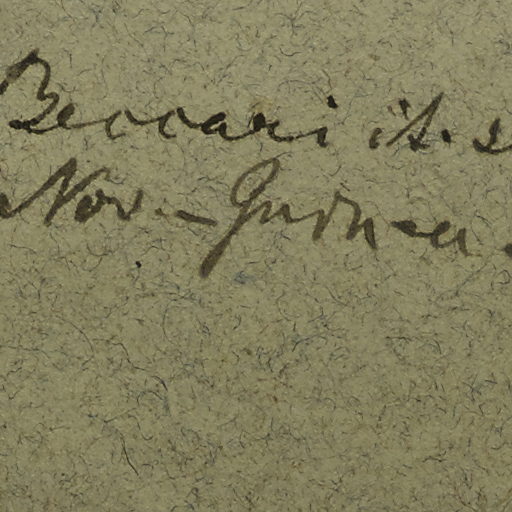 Beccari it. s
Nov-Guinea.